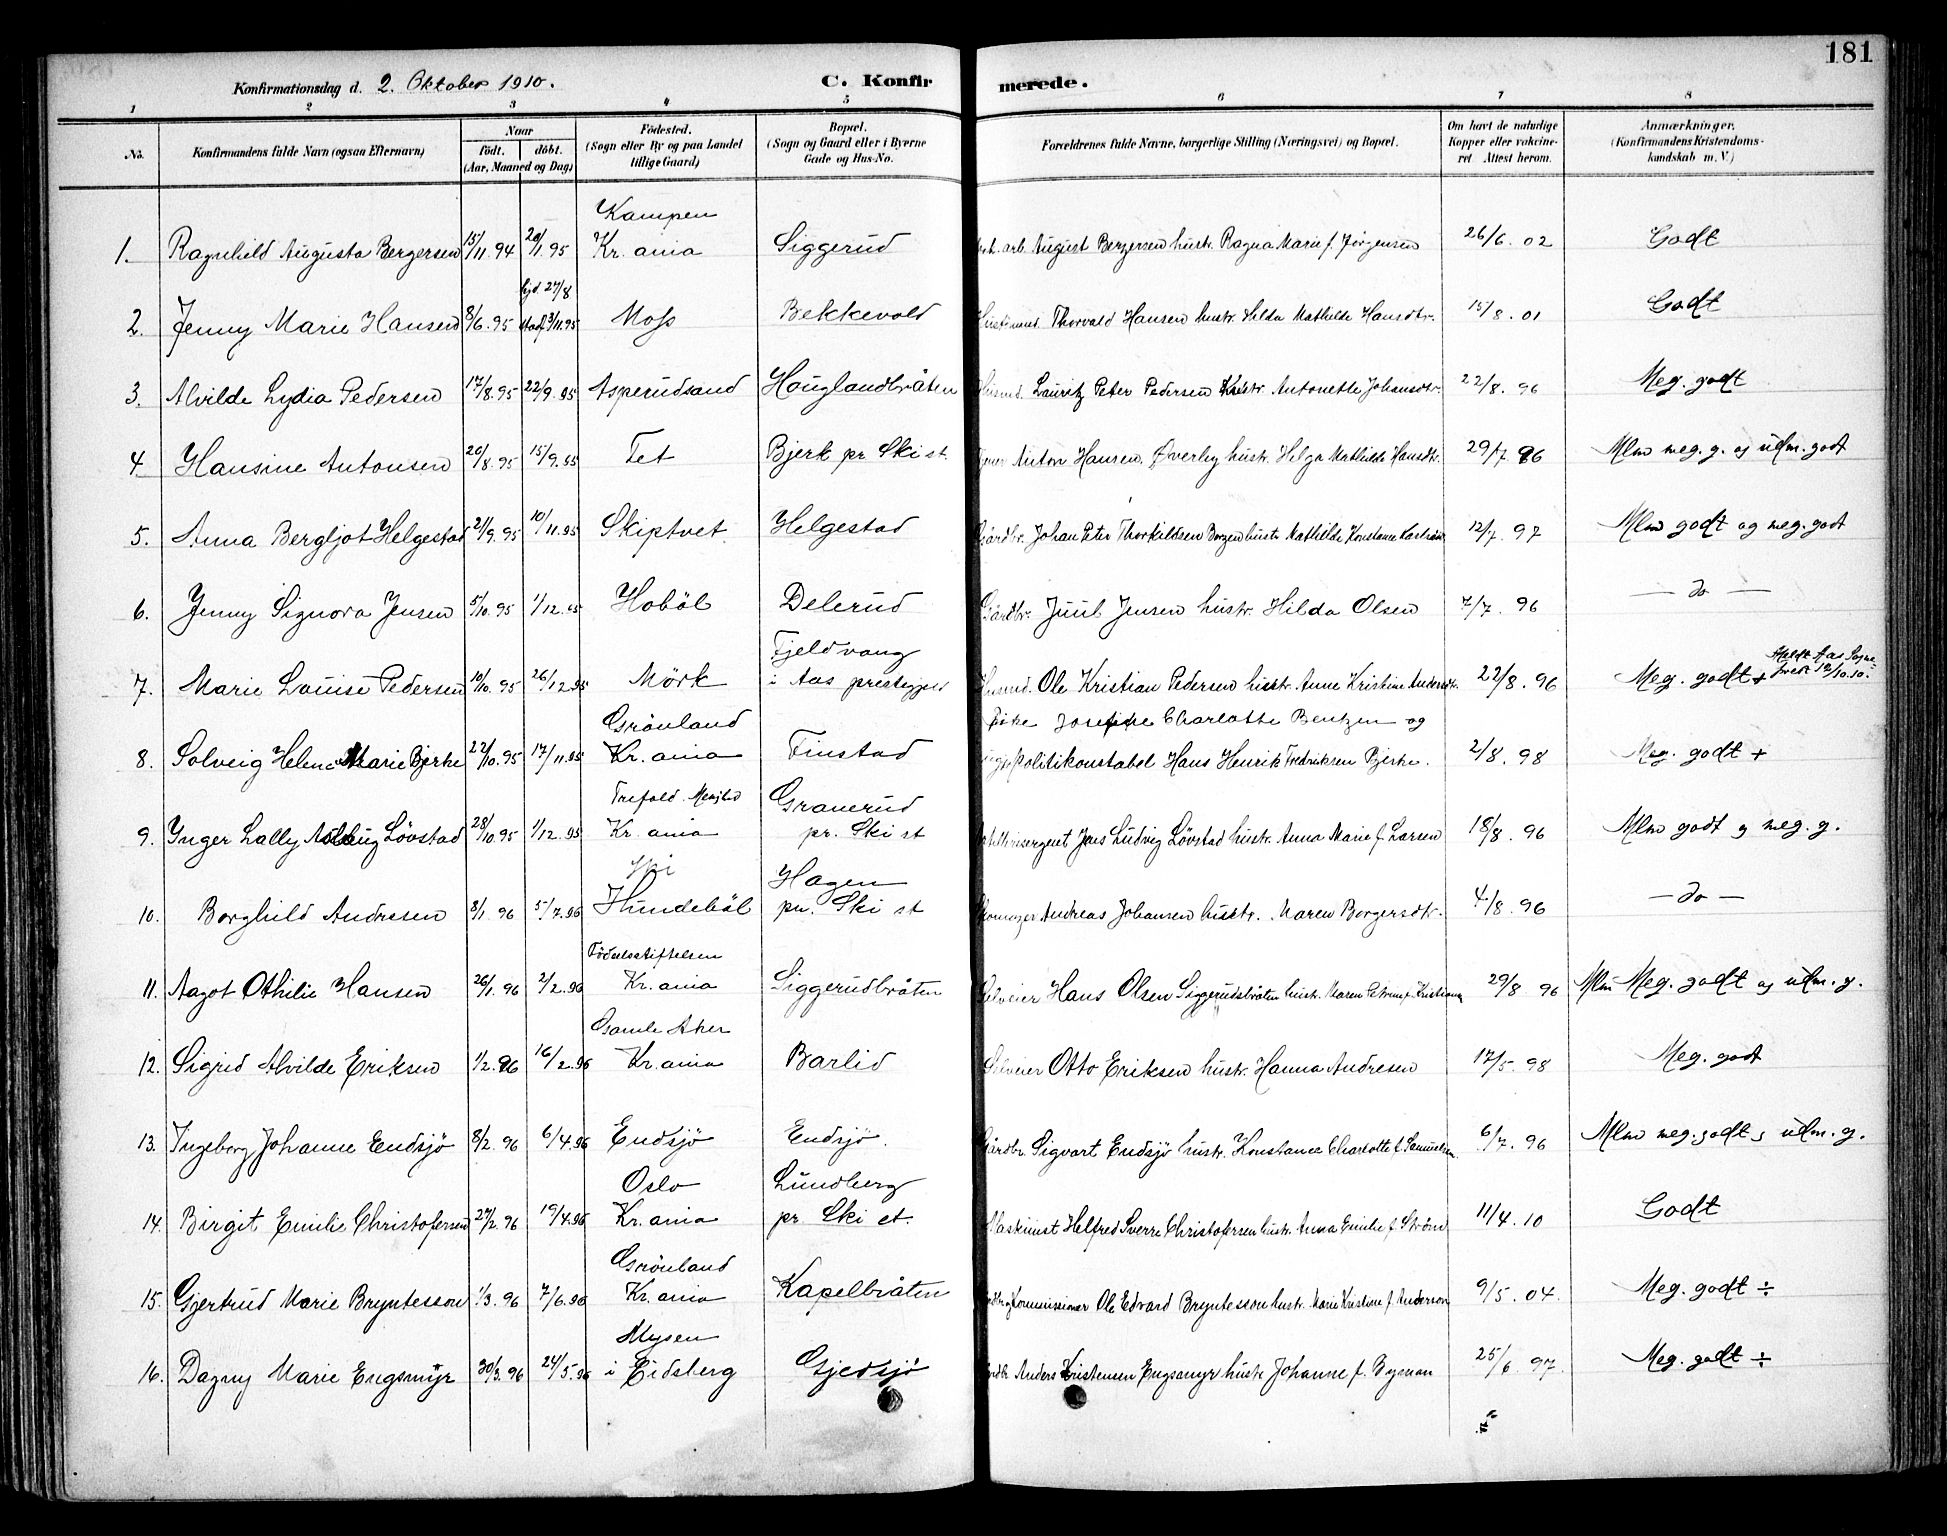 181
Konfirmationsdag d. 2. Oktober 1910. C. Konfirmerede.
1 2 3 4 5 6 7 8
No. Konfirmandens fulde Navn (ogsaa Efternavn) Naar født. døbt. (Aar, Maaned og Dag) Fødested. (Sogn eller By og paa Landet tillige Gaard) Bopæl. (Sogn og Gaard eller i Byerne Gade og Hus-No. Forældrenes fulde Navne, borgerlige Stilling (Næringsvei) og Bopæl. Om havt de naturlige Kopper eller vakcineret Attest herom. Anmærkninger. (Konfirmandens Kristendomskundskab m. V.)
Kampen
1. Ragnhild Augusta Bergersen 15/11.94 20/1.95 Kr.ania Siggerud arb. August Bergersen hustr. Ragna Marie f. Jørgensen 26/6.02 Godt
hjd. 27/8
2. Jenny Marie Hansen 8/6.95 stadf. 3/11.95 Moss Bekkevold Thorvald Hansen hustr. Hilda Mathilde Hansdtr. 15/8.01 Godt
3. Alvilde Lydia Pedersen 17/8.95 22/9.95 Asperudsand Hauglandbråten Husmd. Lauritz Peter Pedersen hustr. Antonette Johansdtr. 22/8.96 Meg. godt
4. Hansine Antonsen 20/8.95 15/9.95 Tet Bjerk pr Ski st. Anton Hansen Øverby hustr. Helga Mathilde Hansdtr. 29/7.96 Mlm meg. g. og udm. godt
5. Anna Bergljot Helgestad 21/9.95 10/11.95 Skiptvet Helgestad Gårdbr. Johan Peter Thorkildsen Borgen hustr. Mathilde Konstanse 12/7.97 Mlm godt og meg. godt
6. Jenny Signora Jensen 5/10.95 1/12.95 Hobøl Delerud Gårdbr. Juul Jensen hustr. Hilda Olsen 7/7.96 — do —
Fjeldvang
7. Marie Louise Pedersen 10/10.95 26/12.95 Mörk i Aas prestegjeld Husmd. Ole Kristian Pedersen hustr. Anne Kristine Andersdtr. 22/8.96 Meg. godt + Meldt Aas Sogneprest 12/10.10.
Grönland Pike Josefine Charlotte Bentzen og
8. Solveig Helene Marie Bjerke 22/10.95 17/11.95 Kr.ania Finstad politikonstabel Hans Henrik Fredriksen Bjerke. 2/8.98 Meg. godt +
Trefold. Menighed Graverud
9. Ynger Lally Aslaug Løvstad 28/10.95 1/12.95 Kr.ania pr. Ski st Jens Ludvig Løvstad hustr. Anna Marie f. Larsen 18/8.96 Mlm godt og meg. g.
Ski Hagen
10. Borghild Andresen 8/1.96 5/7.96 Hundeböl pr. Ski st Skomager Andreas Johansen hustr. Maren Borgersdtr. 4/8.96 — do —
Födselsstiftelsen
11. Aagot Othilie Hansen 26/1.96 2/2.96 Kr.ania Siggerudbråten Selveier Hans Olsen Siggerudsbråten hustr. Maren Petrine f. Kristians 29/8 96 Mlm Meg. godt og udm. g.
Gamle Aker
12. Sigrid Alvilde Eriksen 1/2.96 16/2.96 Kr.ania Barlid Selveier Otto Eriksen hustr. Hanna Andresen 17/5.98 Meg. godt
13. Ingeborg Johanne Endsjö 8/2.96 6/4.96 Endsjö Endsjö. Gårdbr. Sigvart Endsjö hustr. Konstance Charlotte f. Samuelsen 6/7.96 Mlm meg. godt og udm. g.
Oslo Lundberg
14. Birgit Emilie Christofersen 27/2.96 19/4.96 Kr.ania pr. Ski st. Maskinist Helfred Sverre Christofersen hustr. Anna Emilie f. Ström 11/4.10 Godt
Grönland
15. Gjertrud Marie Bryntesson 1/3.96 7/6.96 Kr.ania Kapelbråten kommissionær Ole Edvard Bryntesson hustr. Marie Kristine f. Anderson 9/5.04. Meg. godt ÷
Mysen
16. Dagny Marie Engsmyr 30/3.96 24/5.96 i Eidsberg Gjedsjö Anders Kristensen Engsmyr hustr. Johanne f. Byman 25/6.97. Meg. godt ÷